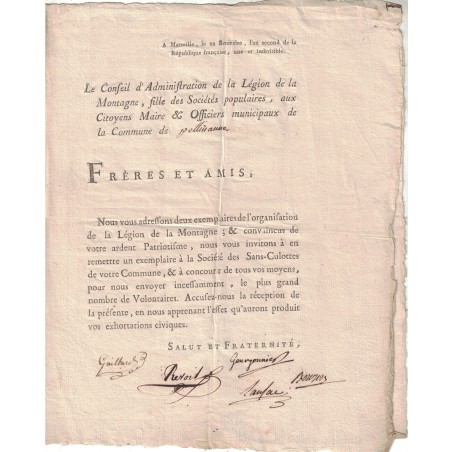 A Marseille, le 22 Brumaire, l'an second de la
République françaife, une et indivifible.
Le Confeil d'Adminiftration de la Légion de la
Montagne, fille des Sociétés populaires, aux
Citoyens Maire & Officiers municipaux de
la Commune de pellissanne
FRÈRES ET AMIS,
Nous vous adreffons deux exemplaires de l'organifation
de la Légion de la Montagne ; & convaincus de
votre ardent Patriotifme, nous vous invitons à en
remettre un exemplaire à la Société des Sans-Culottes
de votre Commune, & à concourir de tous vos moyens,
pour nous envoyer inceffamment, le plus grand
nombre de Volontaires. Accufez-nous la réception de
la préfente, en nous apprenant l'effet qu'auront produit
vos exhortations civiques.
SALUT ET FRATERNITÉ,
Gaillard